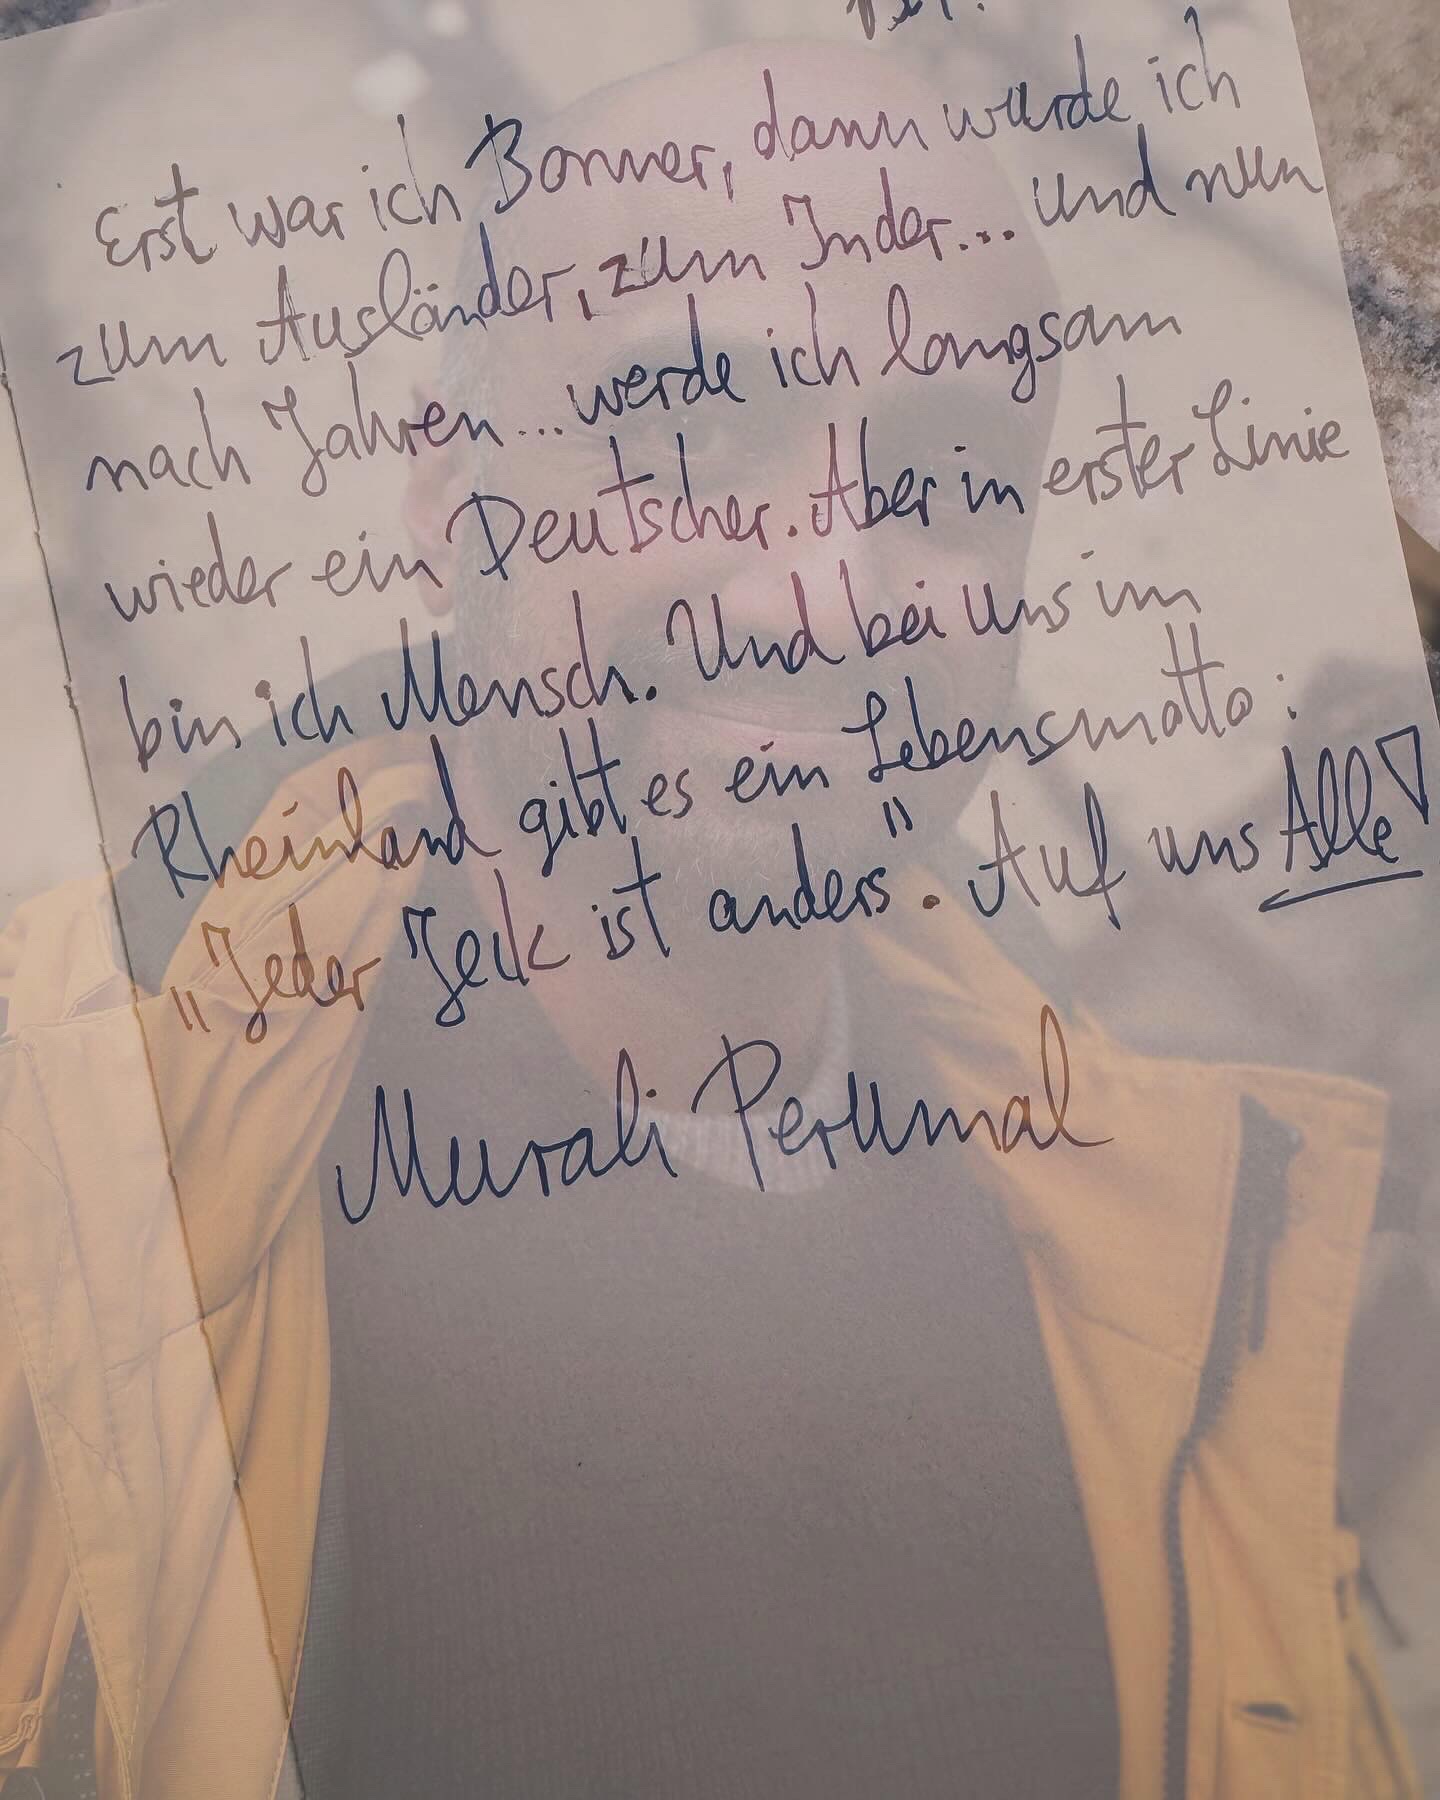 Erst war ich Bonner, dann wurde ich
zum Ausländer, zum Inder... und nun
nach Jahren... werde ich langsam
wieder ein Deutscher. Aber in erster Linie
bin ich Mensch. Und bei uns im
Rheinland gibt es ein Lebensmotto:
„Jeder Jeck ist anders". Auf uns Alle!
Murali Perumal